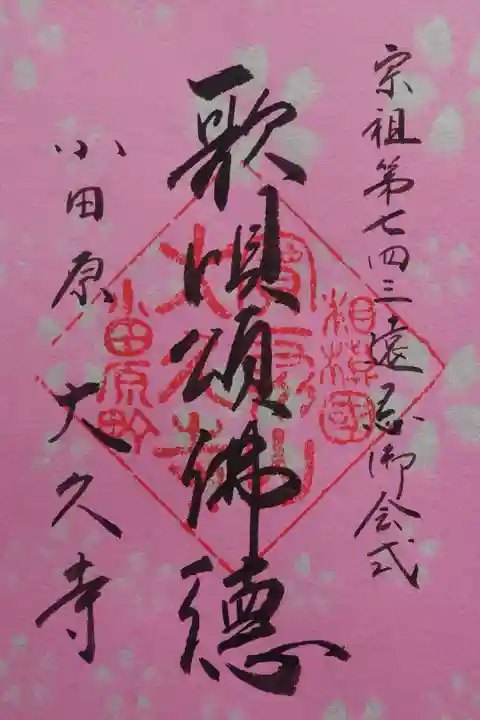 宗祖第七四三遠忌御会式
歌唄頌佛徳
小田原 大久寺
相模國
寶聚山
大久寺
小田原町